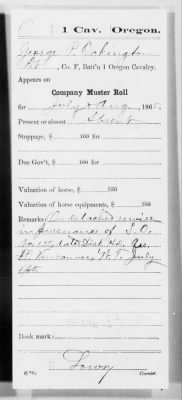 1 Cav. Oregon.
George P. Ockington
Pvt, Co. F, Batt'n 1 Oregon Cavalry.
Appears on
Company Muster Roll
for July & Aug, 1865.
Present or absent Absent
Stoppage, $ 100 for
Due Gov't, $ 100 for
Valuation of horse, $ 100
Valuation of horse equipments, $ 100
Remarks: On detached service
in pursuance of S.O.
No 152 dated Dist Hd Qrs
Ft Vancouver W.T. July
Book mark:
Lowry
Copyist.